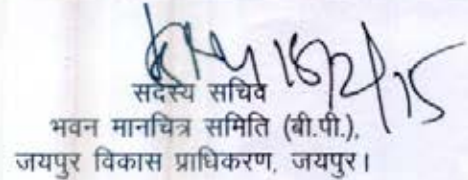 18/2/15
सदस्य सचिव
भवन मानचित्र समिति (बी.पी.),
जयपुर विकास प्राधिकरण, जयपुर।